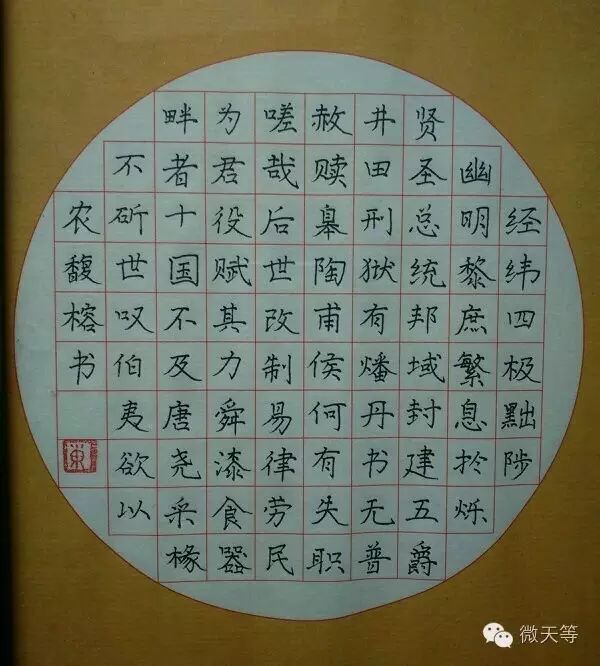 经纬四极黜陟
幽明黎庶繁息於烁
贤圣总统邦域封建五爵
井田刑狱有燔丹书无普
赦赎皋陶甫侯何有失职
嗟哉后世改制易律劳民
为君役赋其力舜漆食器
畔者十国不及唐尧采椽
不斫世叹伯夷欲以
农馥榕书
微天等